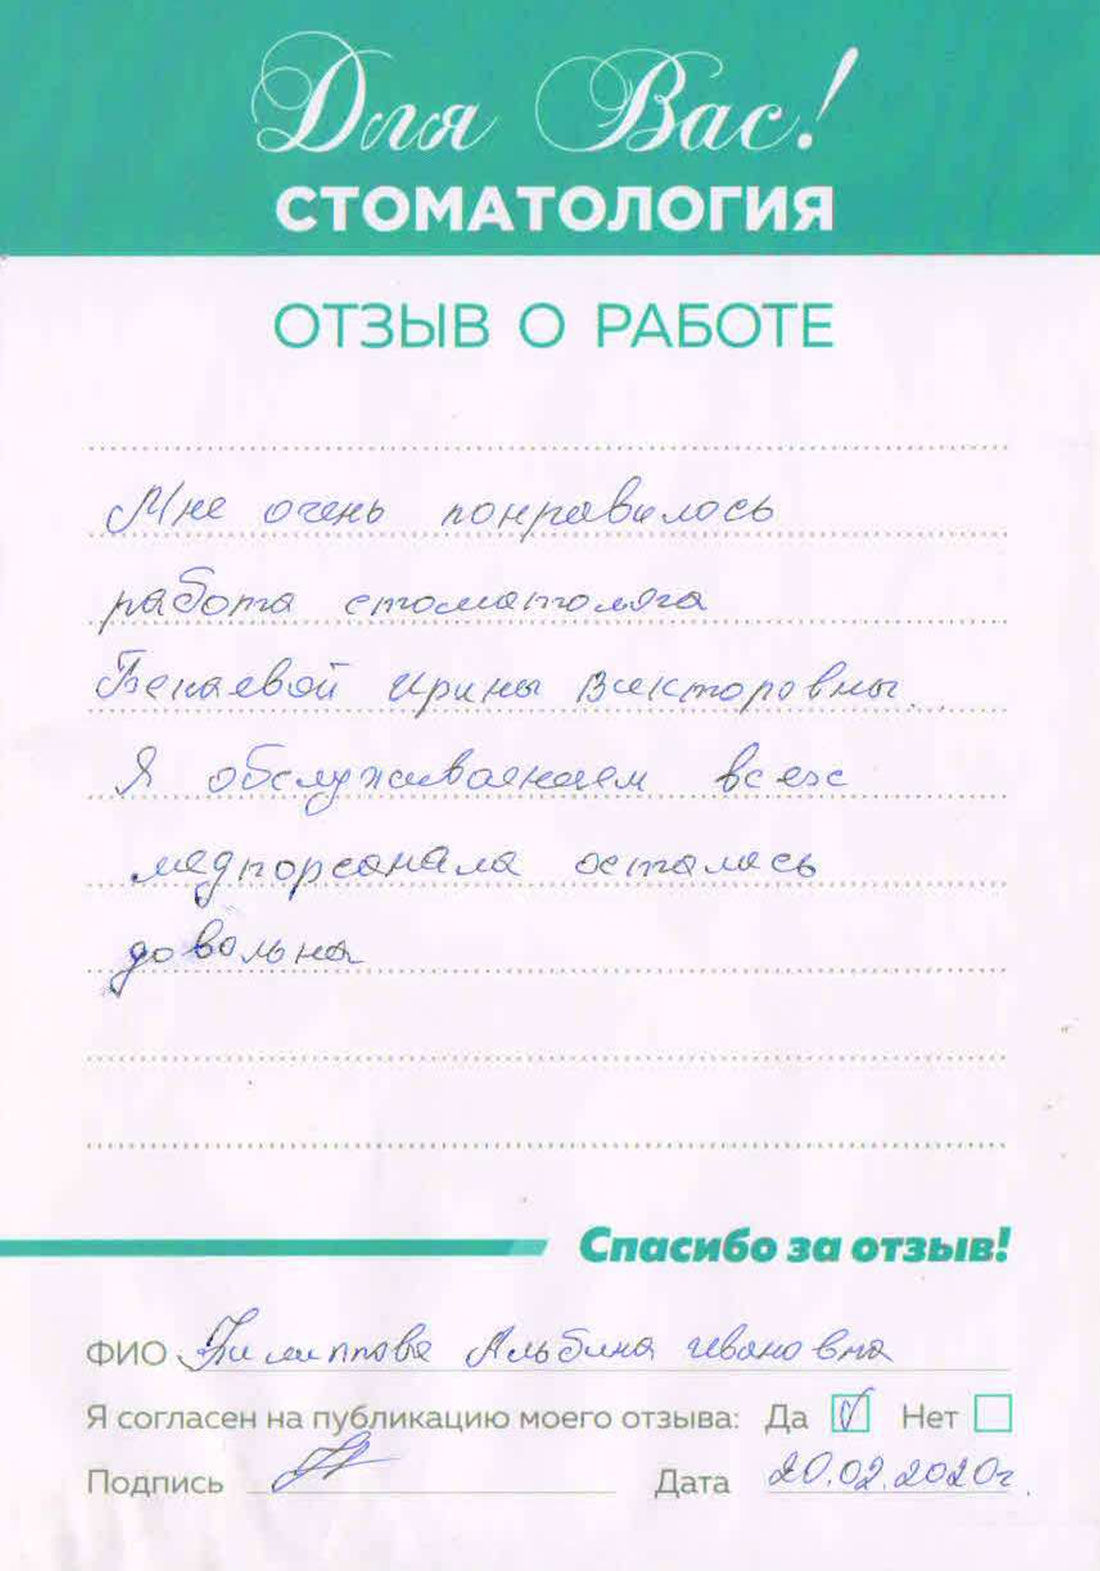 Для Вас!
СТОМАТОЛОГИЯ
ОТЗЫВ О РАБОТЕ
Мне очень понравилось
работа стоматолога
Бекаевой Ирины Викторовны.
Я обслуживанием всего
медпорсанала осталась
довольна
Спасибо за отзыв!
ФИО Филиппова Альбина Ивановна
Я согласен на публикацию моего отзыва: Да Нет
Подпись Дата 20.02.2020г.